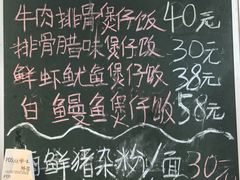 牛肉排骨煲仔饭 40元
排骨腊味煲仔饭 30元
鲜虾鱿鱼煲仔饭 38元
白鳗鱼煲仔饭 58元
鲜猪杂粉/面 30元